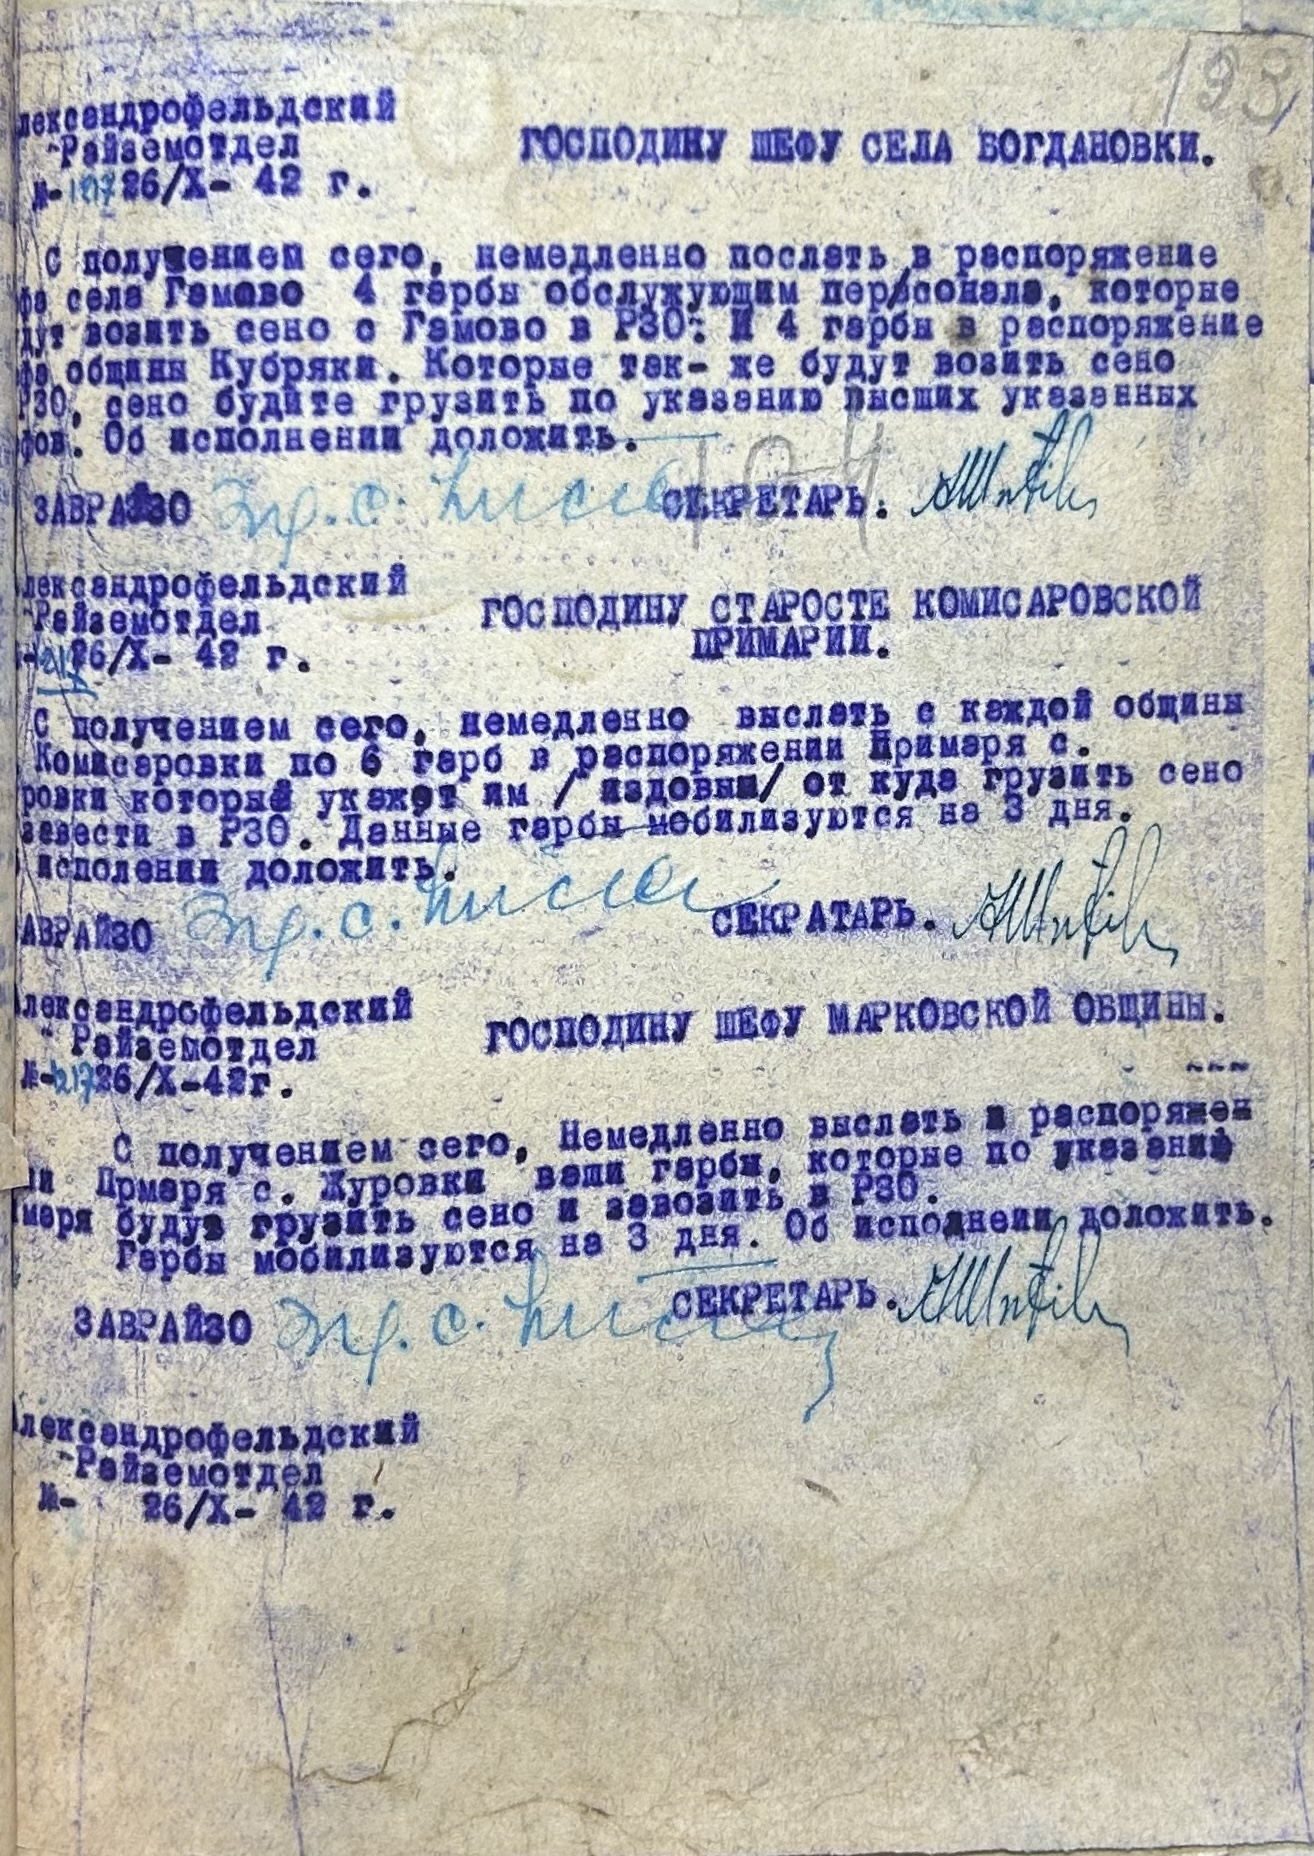 193
лександрофельдский
Райземотдел
№- 26/X- 42 г.
ГОСПОДИНУ ШЕФУ СЕЛА БОГДАНОВКИ.
С получением сего, немедленно послать в распоряжение
фа села Гамово 4 гарбы обслужующим пер/сонала, которые
дут возить сено с Гамово в РЗО. И 4 гарбы в распоряжение
фа общины Кубряки. Которые так- же будут возить сено
РЗО, сено будите грузить по указанию высших указанных
фов. Об исполнении доложить.
ЗАВРАЙЗО СЕКРЕТАРЬ.
лександрофельдский
Райземотдел
26/X- 42 г.
ГОСПОДИНУ СТАРОСТЕ КОМИСАРОВСКОЙ
ПРИМАРИИ.
С получением сего, немедленно выслать с каждой общины
Комисаровки по 6 гарб в распоряжении Примаря с.
ровки который укажет им / издовым/ от куда грузить сено
завести в РЗО. Данные гарбы мобилизуются на 3 дня.
исполении доложить.
АВРАЙЗО СЕКРАТАРЬ.
Александрофельдский
Райземотдел
№-217 26/X-42г.
ГОСПОДИНУ ШЕФУ МАРКОВСКОЙ ОБЩИНЫ.
~~~
С получением сего, Немедленно выслать в распоряжен
ии Прмаря с. Журовки ваши гарбы, которые по указаний
маря будут грузить сено и завозить в РЗО.
Гарбы мобилизуются на 3 дня. Об исполнеии доложить.
ЗАВРАЙЗО СЕКРЕТАРЬ.
Александрофельдский
Райземотдел
№- 26/X- 42 г.